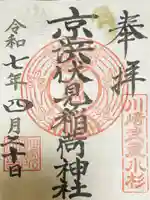 奉拝
川崎
小杉
京濱伏見稲荷神社
令和七年四月二十日